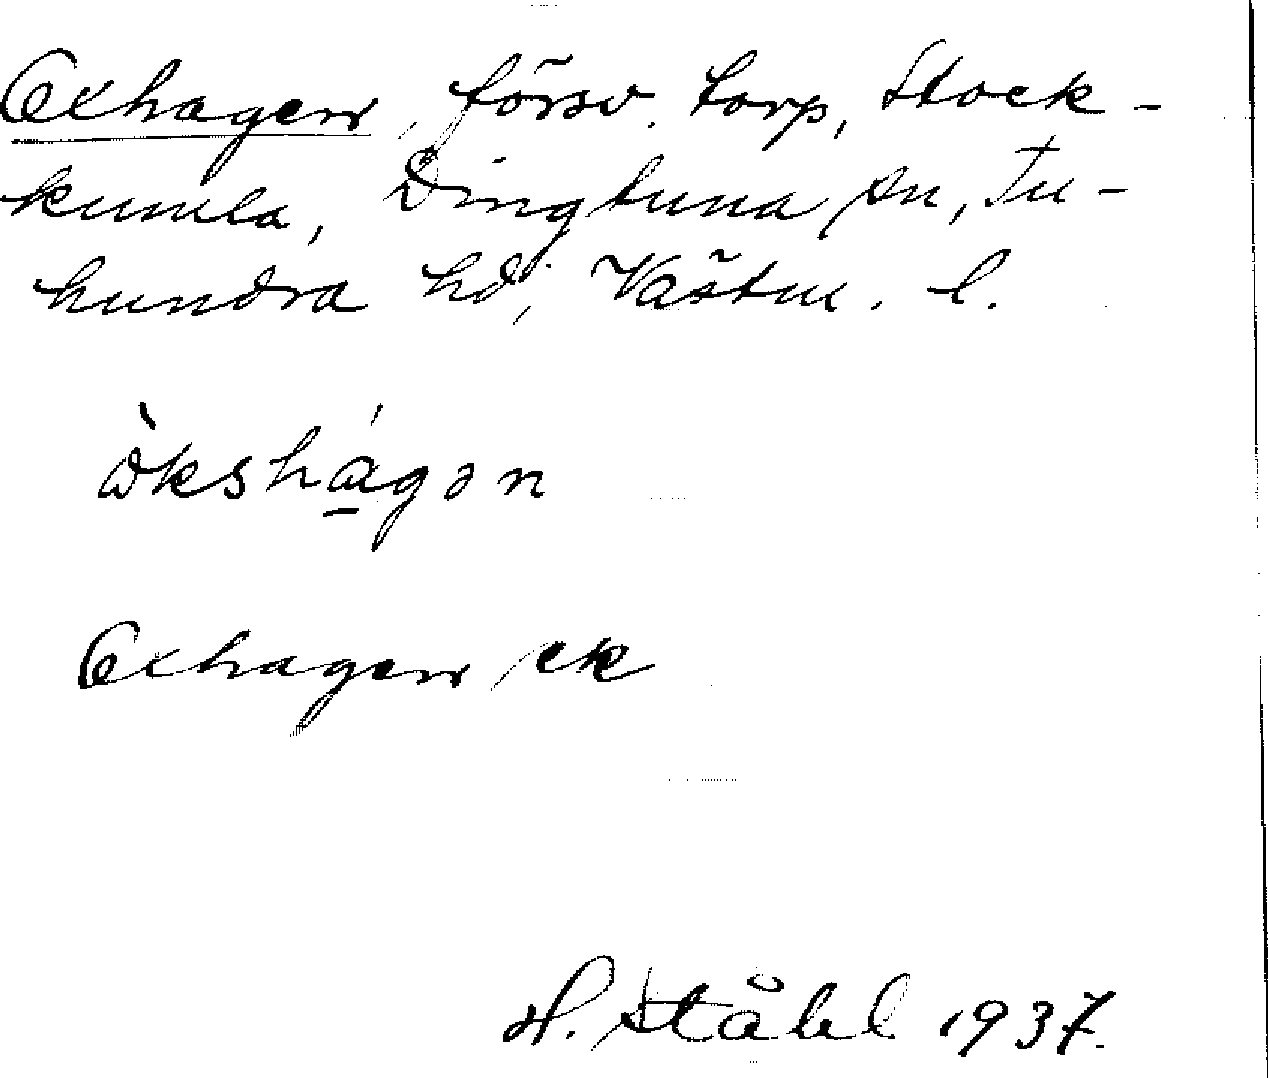 Oxhagen, försv. torp, Stock-
kumla, Dingtuna sn, Tu-
hundra hd, Västm. l.
ὼkshá̱gən
Oxhagen ek
H. Ståhl 1937.